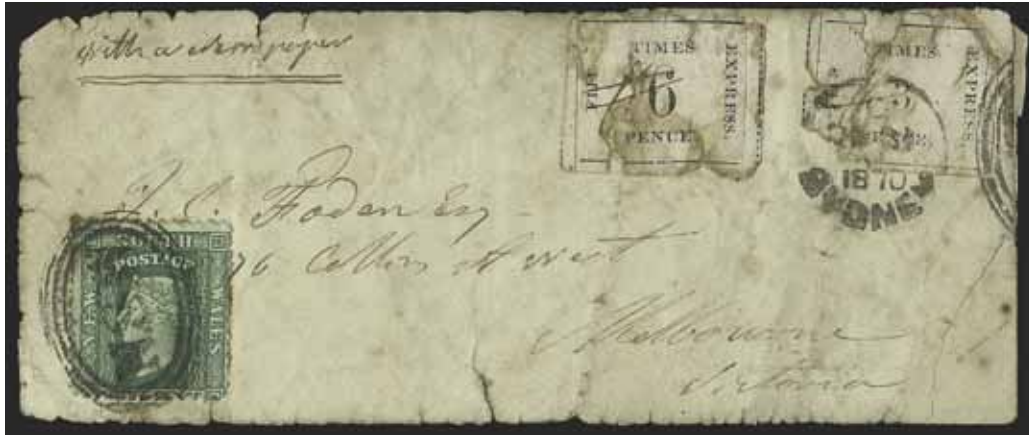 with a newspaper
FIJI TIMES EXPRESS.
6
PENCE
TIMES EXPRESS.
SP 5
1870
SYDNEY
J. C. Foden Esq
76 Collins St West
Melbourne
Victoria
NEW SOUTH WALES
POSTAGE